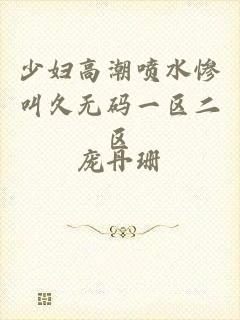 少妇高潮喷水惨
叫久无码一区二
区
庞丹珊